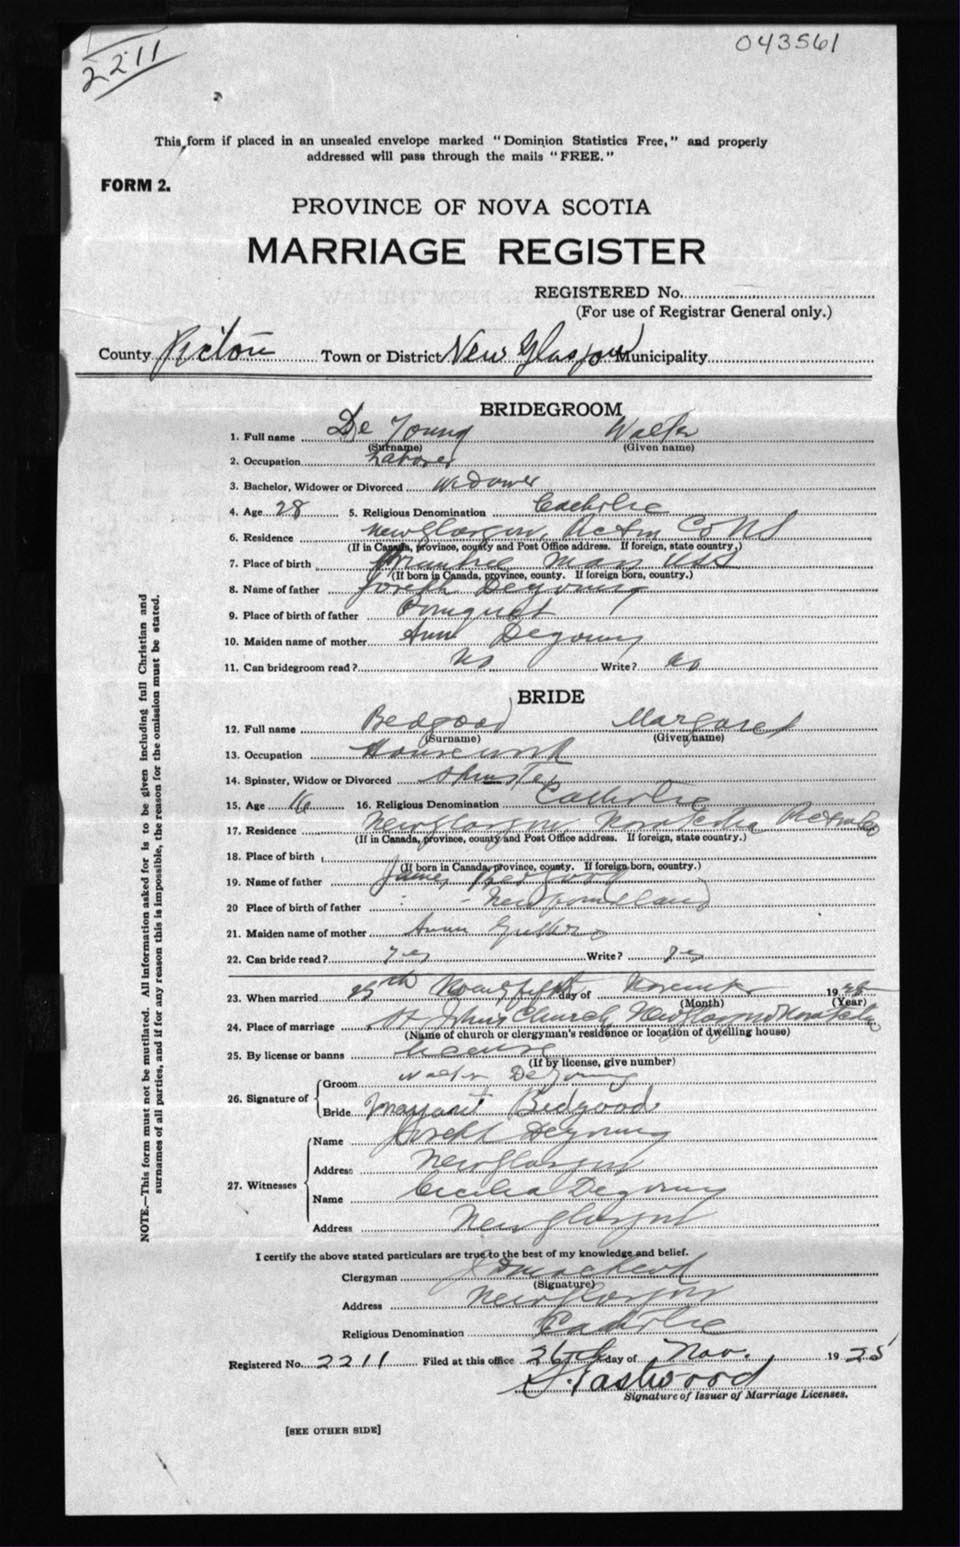 2211
043561
This form if placed in an unsealed envelope marked "Dominion Statistics Free," and properly
addressed will pass through the mails "FREE."
FORM 2.
PROVINCE OF NOVA SCOTIA
MARRIAGE REGISTER
REGISTERED No.
(For use of Registrar General only.)
County Pictou Town or District New Glasgow Municipality
BRIDEGROOM
1. Full name De Young Walter
(Surname) (Given name)
2. Occupation Laborer
3. Bachelor, Widower or Divorced Widower
4. Age 28 5. Religious Denomination Catholic
6. Residence New Glasgow, Pictou Co NS
(If in Canada, province, county and Post Office address. If foreign, state country.)
7. Place of birth Mass USA
(If born in Canada, province, county. If foreign born, country.)
8. Name of father Joseph Deyoung
9. Place of birth of father Pomquet
10. Maiden name of mother Ann Deyoung
11. Can bridegroom read? No Write? no
BRIDE
12. Full name Bedgood Margaret
(Surname) (Given name)
13. Occupation Housework
14. Spinster, Widow or Divorced Spinster
15. Age 16 16. Religious Denomination Catholic
17. Residence New Glasgow, Nova Scotia Pictou Co
(If in Canada, province, county and Post Office address. If foreign, state country.)
18. Place of birth
(If born in Canada, province, county. If foreign born, country.)
19. Name of father James Bedgood
20 Place of birth of father Newfoundland
21. Maiden name of mother Annie
22. Can bride read? yes Write? yes
23. When married 25th day of November 1925
(Month) (Year)
24. Place of marriage St John's Church, New Glasgow Nova Scotia
(Name of church or clergyman's residence or location of dwelling house)
25. By license or banns license
(If by license, give number)
26. Signature of Groom Walter DeYoung
Bride Margaret Bedgood
27. Witnesses Name Joseph Deyoung
Address New Glasgow
Name Cecilia Deyoung
Address New Glasgow
I certify the above stated particulars are true to the best of my knowledge and belief.
Clergyman
(Signature)
Address New Glasgow
Religious Denomination Catholic
Registered No. 2211 Filed at this office 26th day of Nov. 1925
Eastwood
Signature of Issuer of Marriage Licenses.
[SEE OTHER SIDE]
NOTE.—This form must not be mutilated. All information asked for is to be given including full Christian and
surnames of all parties, and if for any reason this is impossible, the reason for the omission must be stated.